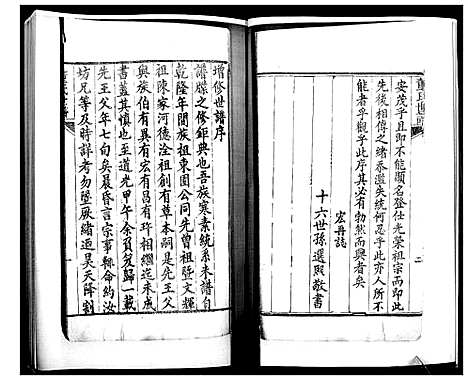 安茂乎且卽不能顯名登仕光榮祖宗而卽此
先後相傳之緒忝濫失統何忍乎此亦人所不
能者乎觀乎此序其必有勃然而興者矣
宏再誌
十六世孫選照敬書
增修世譜序
譜牒之修鉅典也吾族寒素統系未譜自
乾隆年間族祖東園公同先曾祖暨文輝
祖陳家河德淦祖創有草本嗣是先王父
與族伯有宏有昌有玶相繼迄未成
書蓋其慎也至道光甲午余負笈歸一載
先王父年七旬矣晨昏言宗事輒命約汝
坊兄等及時詳考勿墮厥緒迺昊天降割